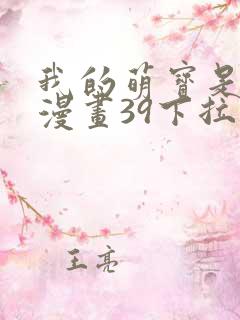 我的萌寶是
漫畫39下拉
王亮